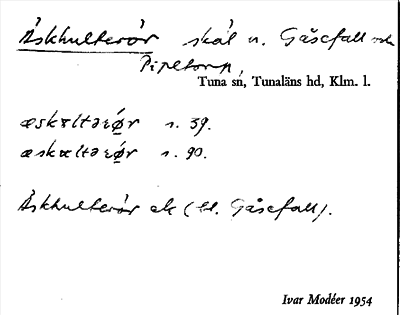 Åskhulterör skäl n. Gåsefall och
Pipetorp,
Tuna sn, Tunaläns hd, Klm. l.
æskɷltərø̱r s. 39.
æskɷltərø̱r s. 90.
Åskhulterör ek (tl. Gåsefall).
Ivar Modéer 1954